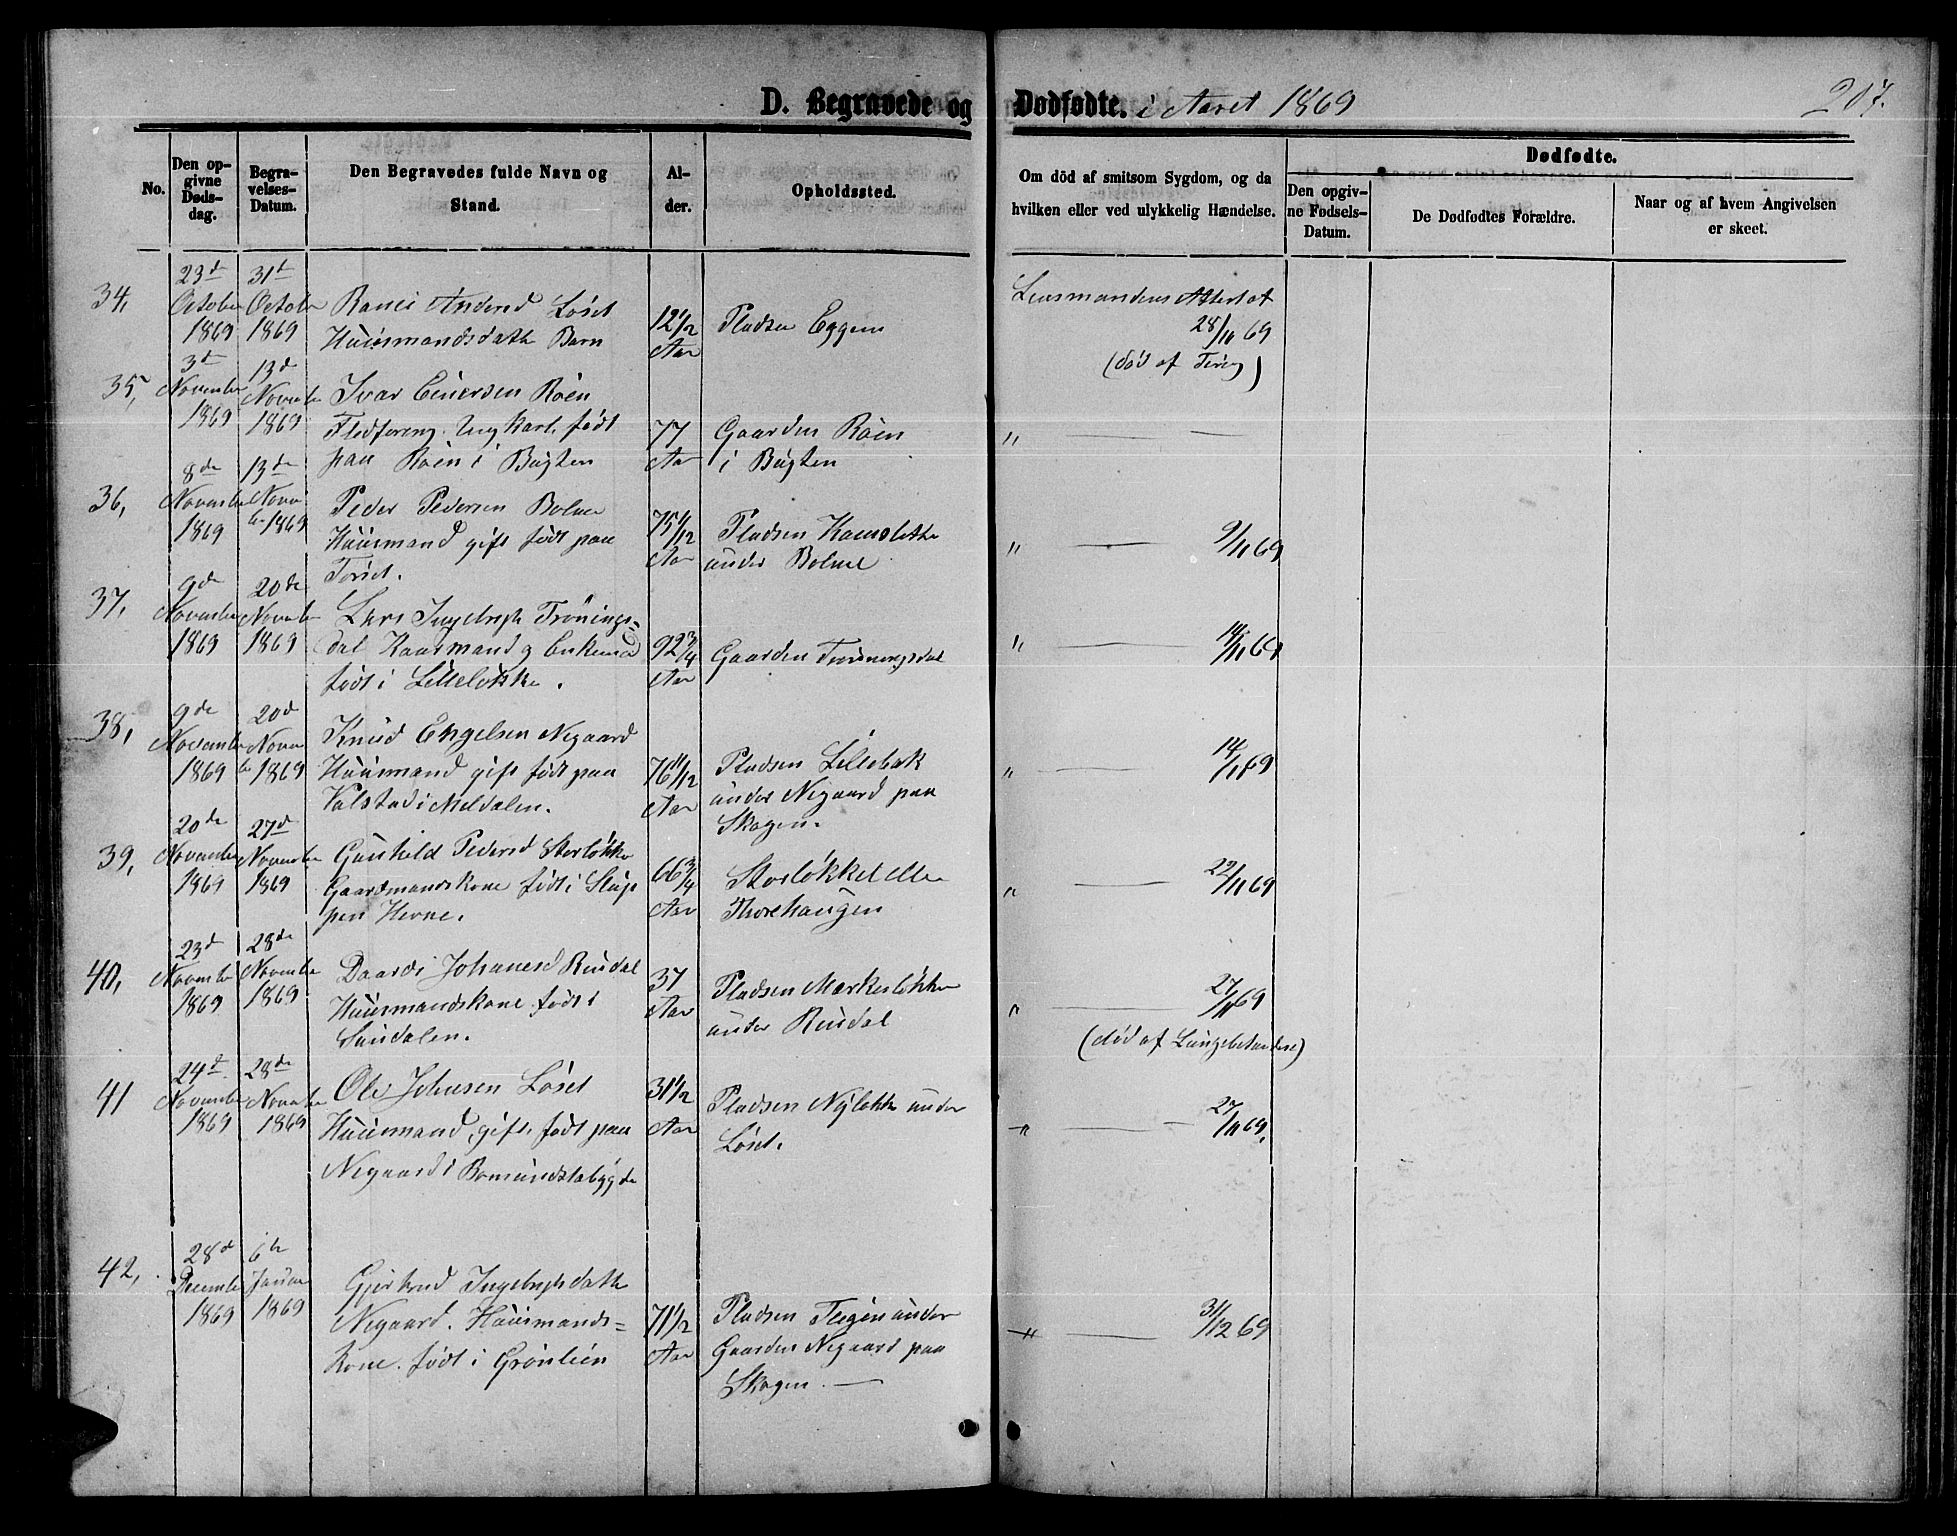 D. Begravede og Dødfødte. i Aaret 1869
207.
No.
Den opgivne Dødsdag.
Begravelses-Datum.
Den Begravedes fulde Navn og Stand.
Alder.
Opholdssted.
Om död af smitsom Sygdom, og da hvilken eller ved ulykkelig Hændelse.
Dødfødte.
Den opgivne Fødsels-Datum.
De Dødfødtes Forældre.
Naar og af hvem Angivelsen er skeet.
34,
23d October 1869
31t October 1869
Anders Løset
Huusmandsdatt Barn
12 1/2 Aar
Pladsen Eggen
Lensmandens Attest af
28/11 69
(død af Tæring)
35,
3d November 1869
13d November 1869
Ivar Einersen Röen
Ungkarl født
paa Röen i Bügten
77 Aar
Gaarden Röen
i Bügten
"
36,
8de November 1869
13de Novemb 1869
Peder Pedersen Bolme
Huusmand gift født paa
Torset.
75 1/12 Aar
Pladsen
under Bolme
" 9/11 69
37,
9de November 1869
20de November 1869
Lars Ingebrigts Trönings=
dal Huusmand og Enkemd
født i Lilleløkke.
92 3/4 Aar
Gaarden Tröningsdal
" 14/11 69
38,
9de November 1869
20d November 1869
Knud Engelsen Negaard
Huusmand gift født paa
Valstad i Meldalen.
76 11/12 Aar
Pladsen Lillebæk
under Negaard paa
Skogen.
" 14/11 69
39,
20de November 1869
27d November 1869
Gunhild Pedersd Storløkke
Gaardmandskone født i
Hevne.
66 3/4 Aar
Storløkke eller
Thorehaugen
" 22/11 69
40,
23d November 1869
28de November 1869
Johannesd Rindal
Huusmandskone født i
Sundalen.
37 Aar
Pladsen Markusløkken
under Rindal
" 27/11 69
(død af Lungebetændelse)
41
24d November 1869
28de November 1869
Ole Johnsen Løset
Huusmand, gift, født paa
Negaard i Bomundstabygde
31 1/2 Aar
Pladsen Nyløkke under
Løset.
" 27/11 69,
42,
28d December 1869
6te Januar 1869
Gjertrud Ingebrigtsdatte
Negaard. Huusmands=
kone. født i Grönlien
71 1/2 Aar
Pladsen Teigen under
Gaarden Negaard paa
Skogen.
" 31/12 69